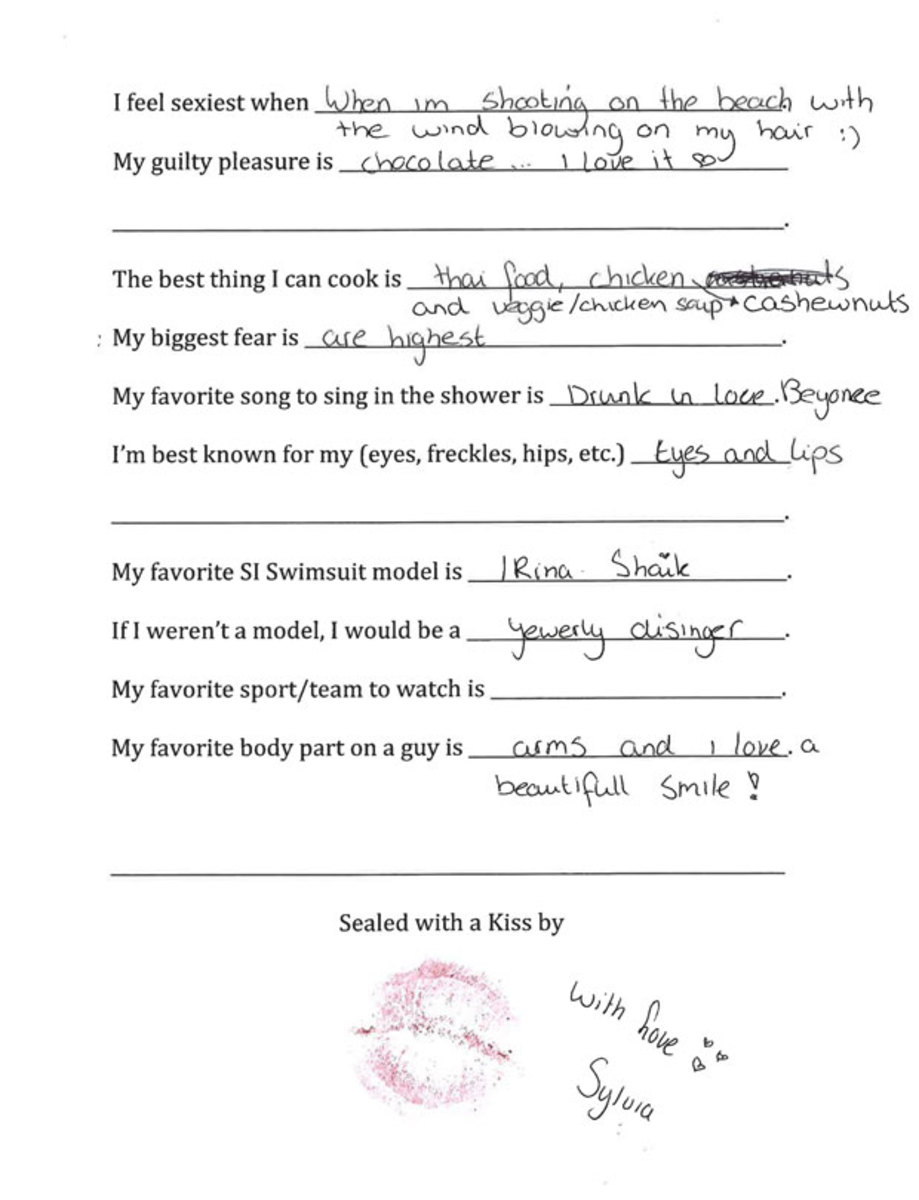 I feel sexiest when When im shooting on the beach with
the wind blowing on my hair :)
My guilty pleasure is chocolate ... I love it
.
The best thing I can cook is thai food, chicken
and veggie/chicken soup * cashewnuts
: My biggest fear is are highest .
My favorite song to sing in the shower is Drunk in love. Beyonce
I'm best known for my (eyes, freckles, hips, etc.) Eyes and Lips
.
My favorite SI Swimsuit model is IRina Shaik .
If I weren't a model, I would be a yewerly disinger .
My favorite sport/team to watch is .
My favorite body part on a guy is arms and i love. a
beautifull smile !
Sealed with a Kiss by
with love
Sylvia